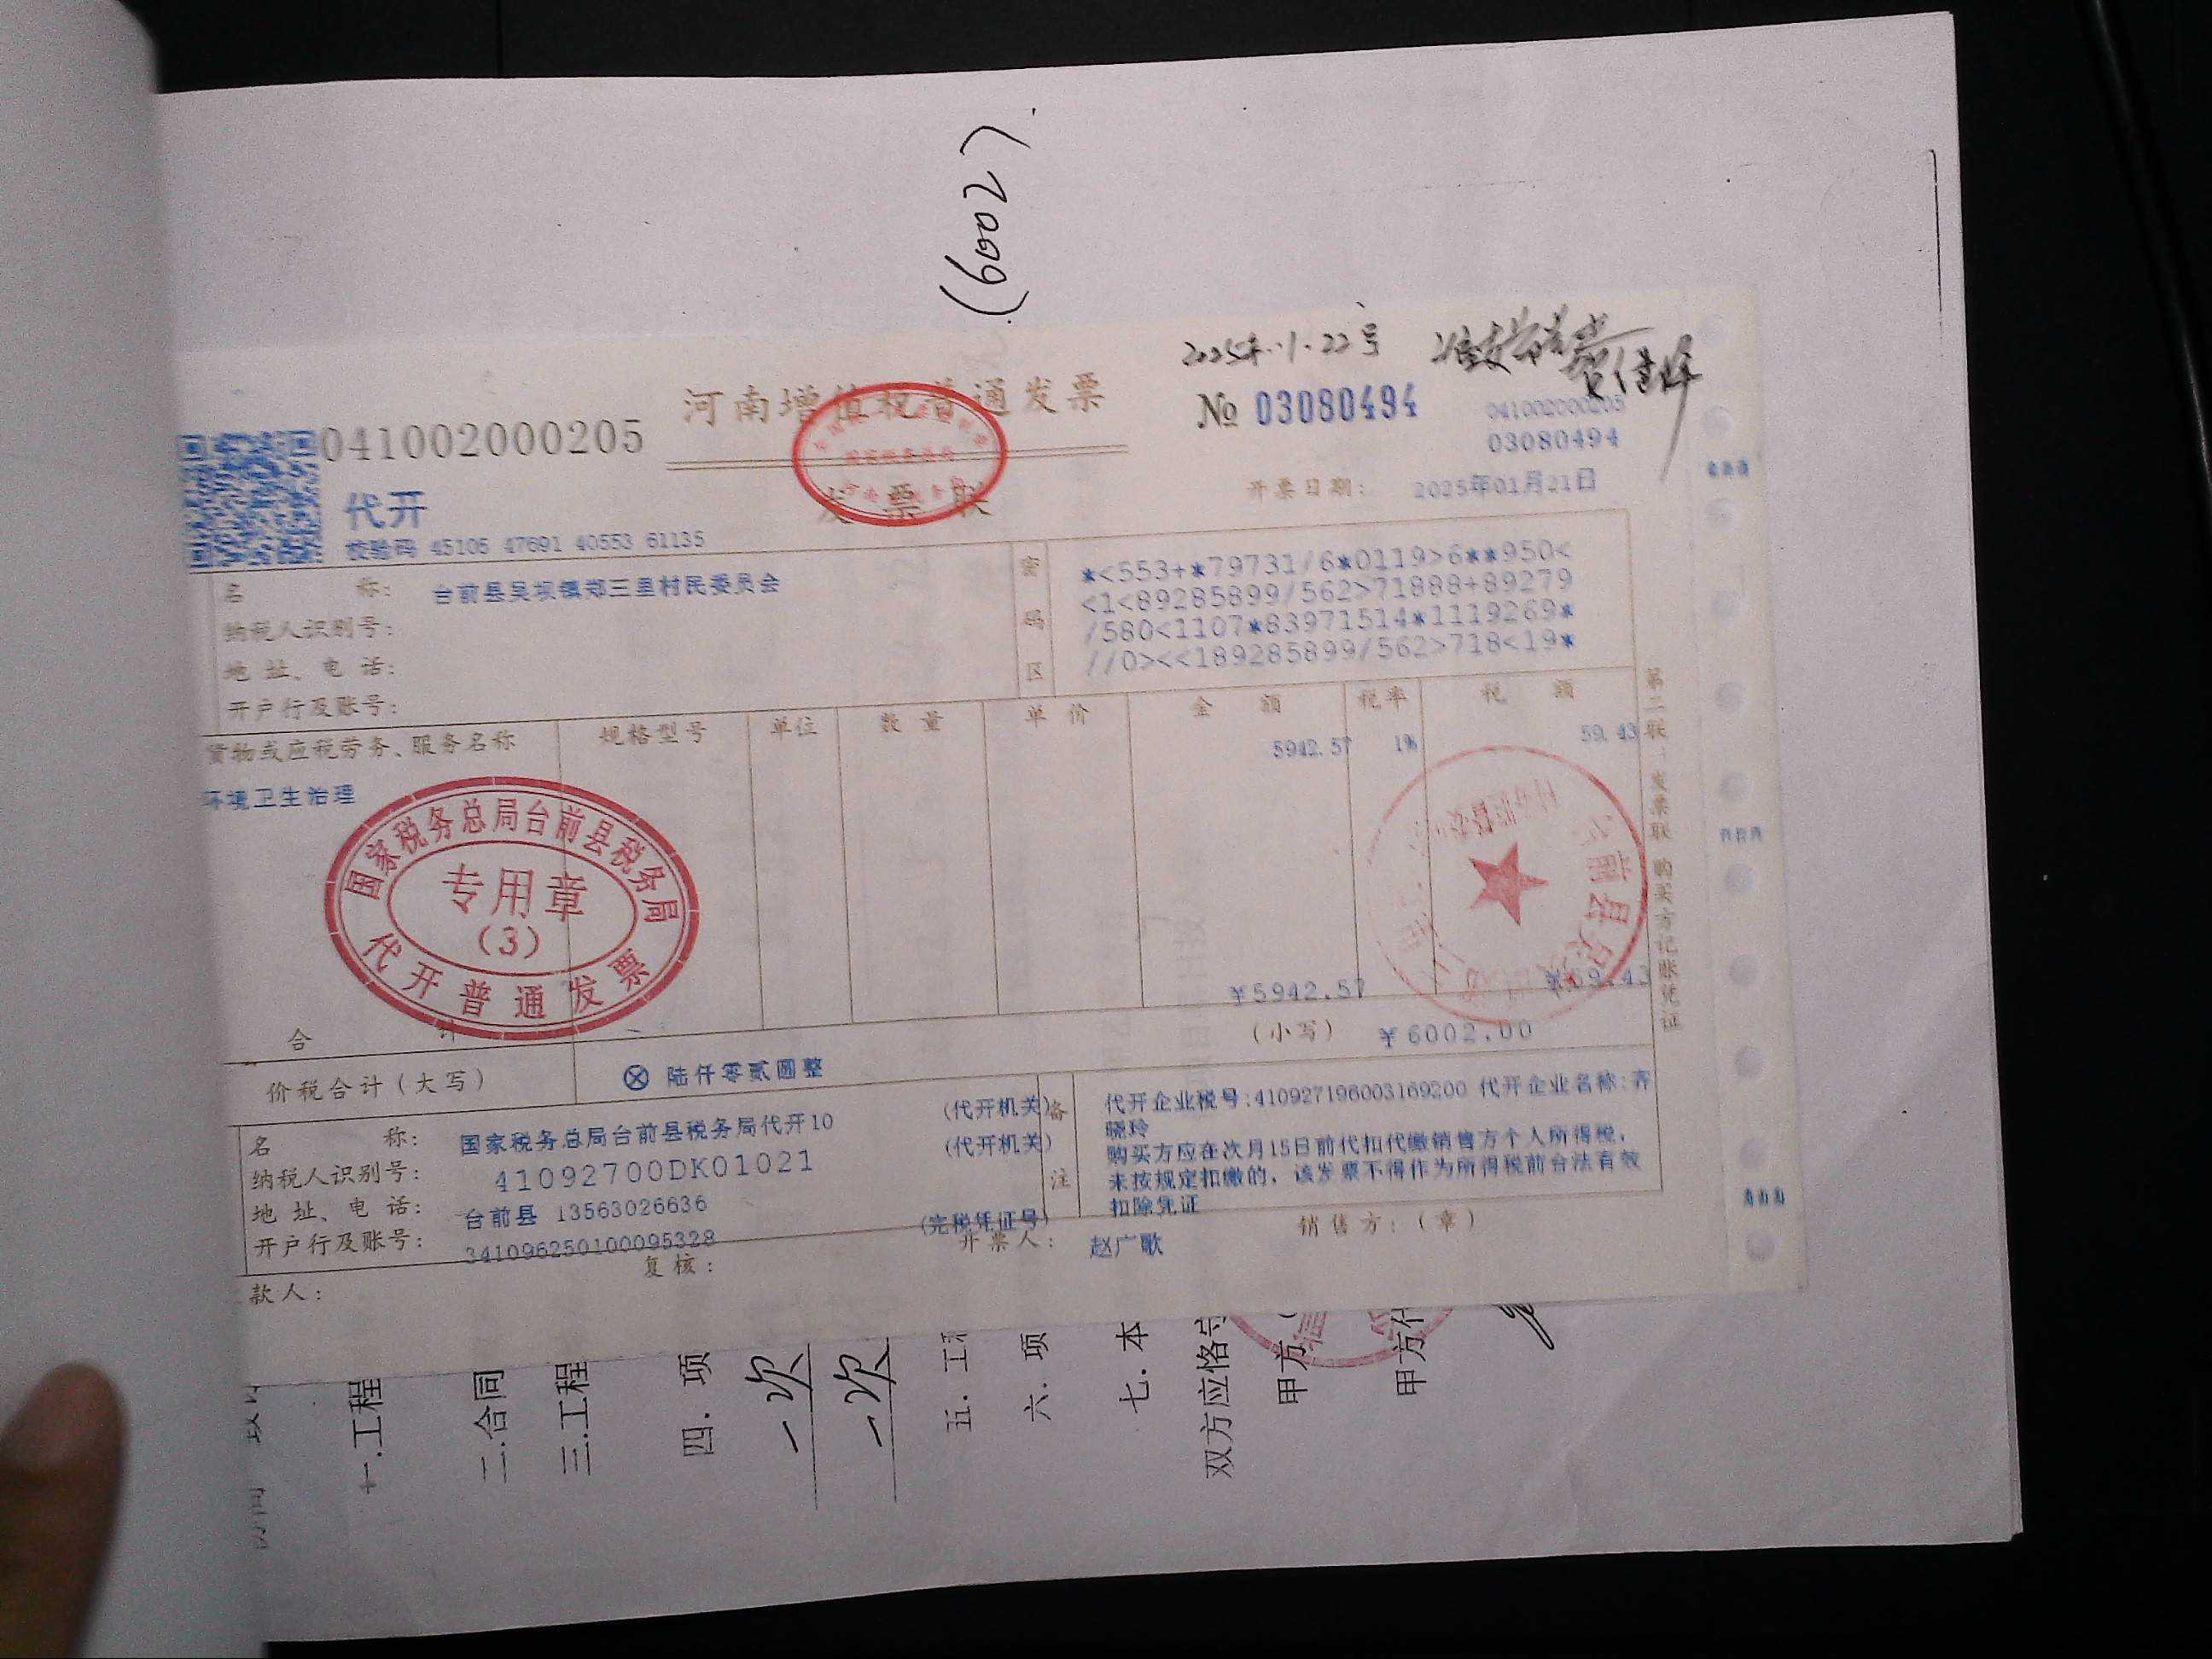 (6002)
2025年.1.22号
041002000205
河南增值税普通发票
No 03080494
041002000205
03080494
代开
发票联
开票日期: 2025年01月21日
校验码 45105 47691 40553 61135
名 称: 台前县吴坝镇郑三里村民委员会
纳税人识别号:
地 址、电 话:
开户行及账号:
密码区
*<553+*79731/6*0119>6**950<
<1<89285899/562>71888+89279
/580<1107*83971514*1119269*
//0><<189285899/562>718<19*
货物或应税劳务、服务名称 规格型号 单位 数量 单价 金额 税率 税额
环境卫生治理 5942.57 1% 59.43
国家税务总局台前县税务局
专用章
(3)
代开普通发票
台前县
第二联:发票联 购买方记账凭证
合 计 ¥5942.57 ¥59.43
价税合计(大写) ⊗ 陆仟零贰圆整 (小写) ¥6002.00
名 称: 国家税务总局台前县税务局代开10 (代开机关)
纳税人识别号: 41092700DK01021 (代开机关)
地 址、电 话: 台前县 13563026636
开户行及账号: 341096250100095328 (完税凭证号)
备注
代开企业税号:410927196003169200 代开企业名称:齐
晓玲
购买方应在次月15日前代扣代缴销售方个人所得税,
未按规定扣缴的,该发票不得作为所得税前合法有效
扣除凭证
款人: 复核: 开票人: 赵广歌 销售方:(章)
一.工程
二.合同
三.工程
四. 项
一次
一次
五. 工程
六. 项
七. 本
双方应恪守
甲方(
甲方代